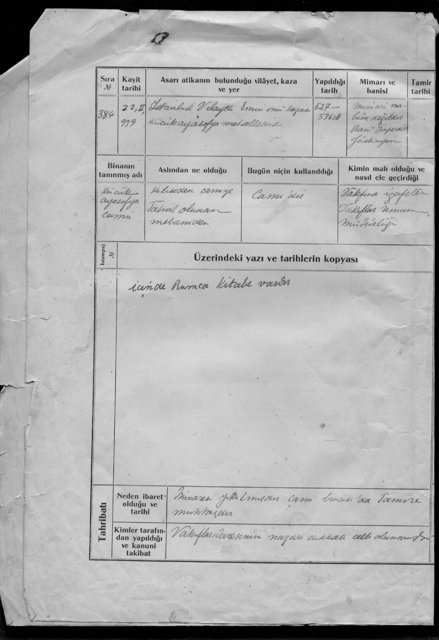 Sıra № Kayit tarihi Asarı atikanın bulunduğu vilâyet, kaza ve yer Yapıldığı tarih Mimarı ve banisi Tamir tarihi
384 22, II, 939 İstanbul Vilayeti Emin önü kazası 527–
Küçükayasofya mahallesi 536 Banı
Binanın tanınmış adı Aslından ne olduğu Bugün niçin kullanıldığı Kimin malı olduğu ve nasıl ele geçirdiği
Küçük ayasofya camii
kiliseden camiye
Tahvil olunan
mebaniden
Camidir
Vakfına izafeten
Vakıflar Umum
Müdürlüğü
Üzerindeki yazı ve tarihlerin kopyası
№
içinde Rumca kitabe vardır
Tahribatı
Neden ibaret olduğu ve tarihi
Minaresi camii binası da Tamire
muhtaçdır
Kimler tarafından yapıldığı ve kanuni takibat
Vakıflar idaresinin nazarı dikkati celb olunmuştur